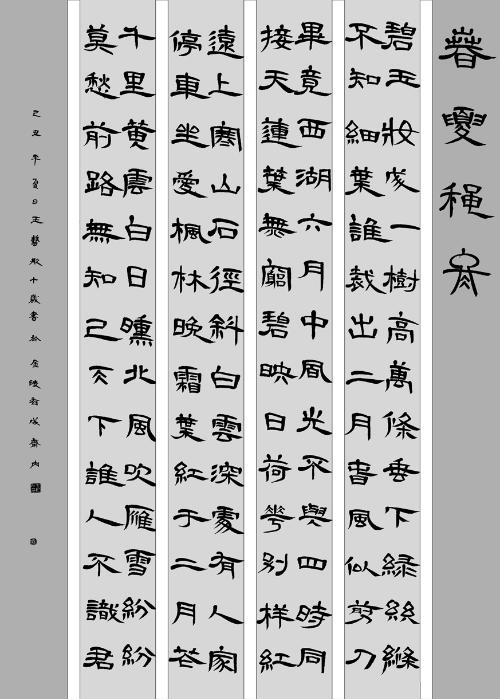 春夏穐冬
碧玉妝成一樹高萬條垂下綠絲絛
不知細葉誰裁出二月春風似剪刀
畢竟西湖六月中風光不與四時同
接天蓮葉無窮碧映日荷花別樣紅
遠上寒山石徑斜白雲深處有人家
停車坐愛楓林晚霜葉紅于二月花
千里黃雲白日曛北風吹雁雪紛紛
莫愁前路無知己天下誰人不識君
己丑年夏日王藝十歲書於金陵成齋內